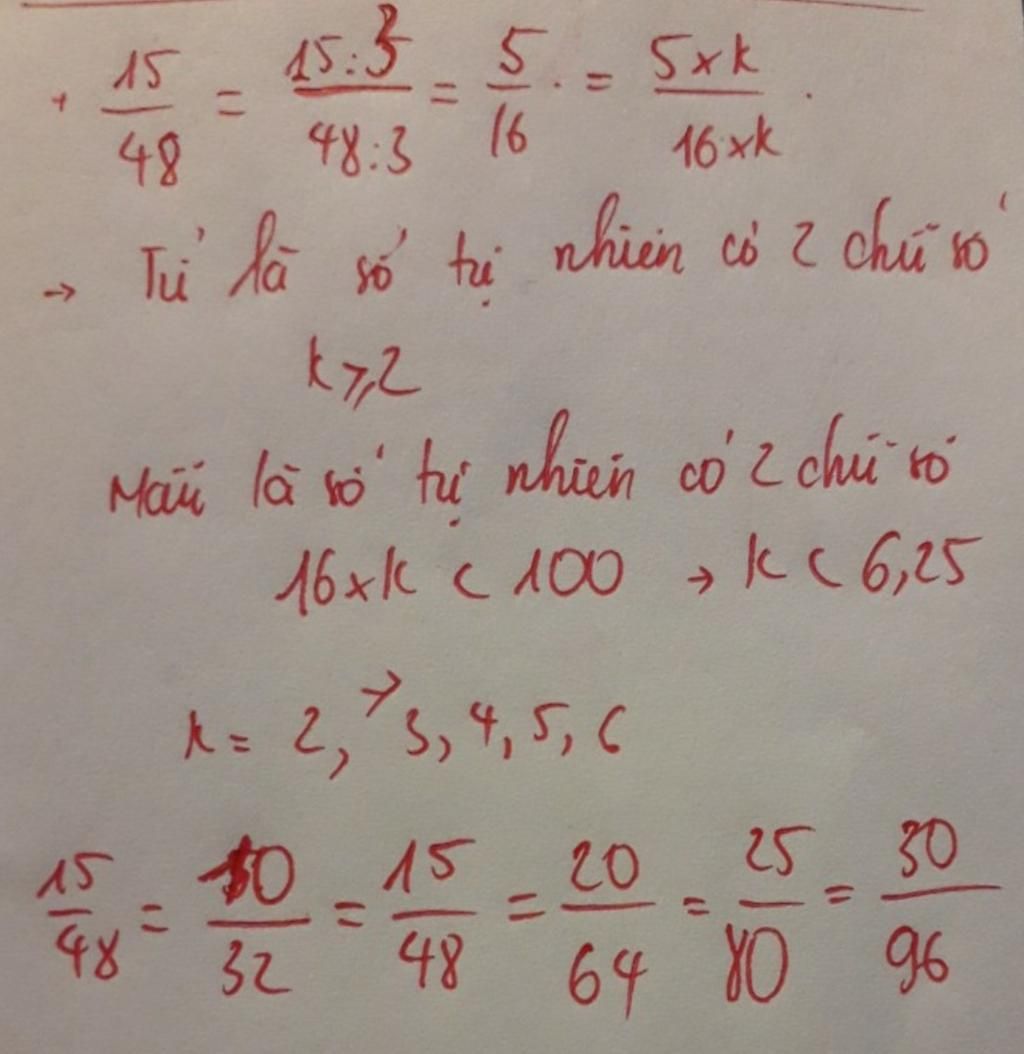 + 15/48 = 15:3/48:3 = 5/16 . = 5xk/16xk .
→ Tử là số tự nhiên có 2 chữ số
k ⩾ 2
Mẫu là số tự nhiên có 2 chữ số
16xk < 100 → k < 6,25
k = 2, → 3, 4, 5, 6
15/48 = 10/32 = 15/48 = 20/64 = 25/80 = 30/96